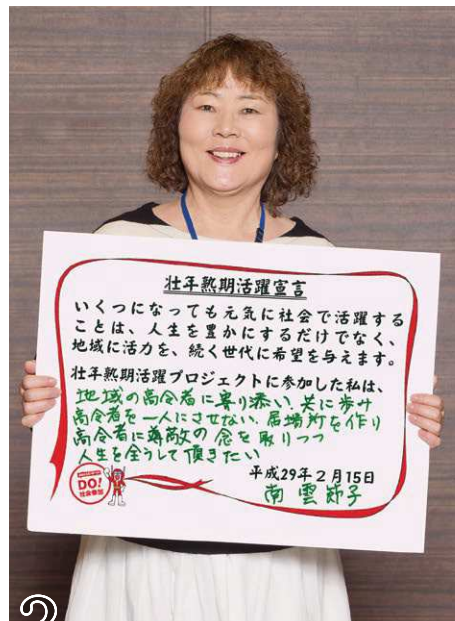 壮年熟期活躍宣言
いくつになっても元気に社会で活躍する
ことは、人生を豊かにするだけでなく、
地域に活力を、続く世代に希望を与えます。
壮年熟期活躍プロジェクトに参加した私は、
地域の高令者に寄り添い.共に歩み
高令者を一人にさせない.居場所を作り
高令者に尊敬の念を取りつつ
人生を全うして頂きたい
平成29年2月15日
南雲 節子
DO!
社会参加
2